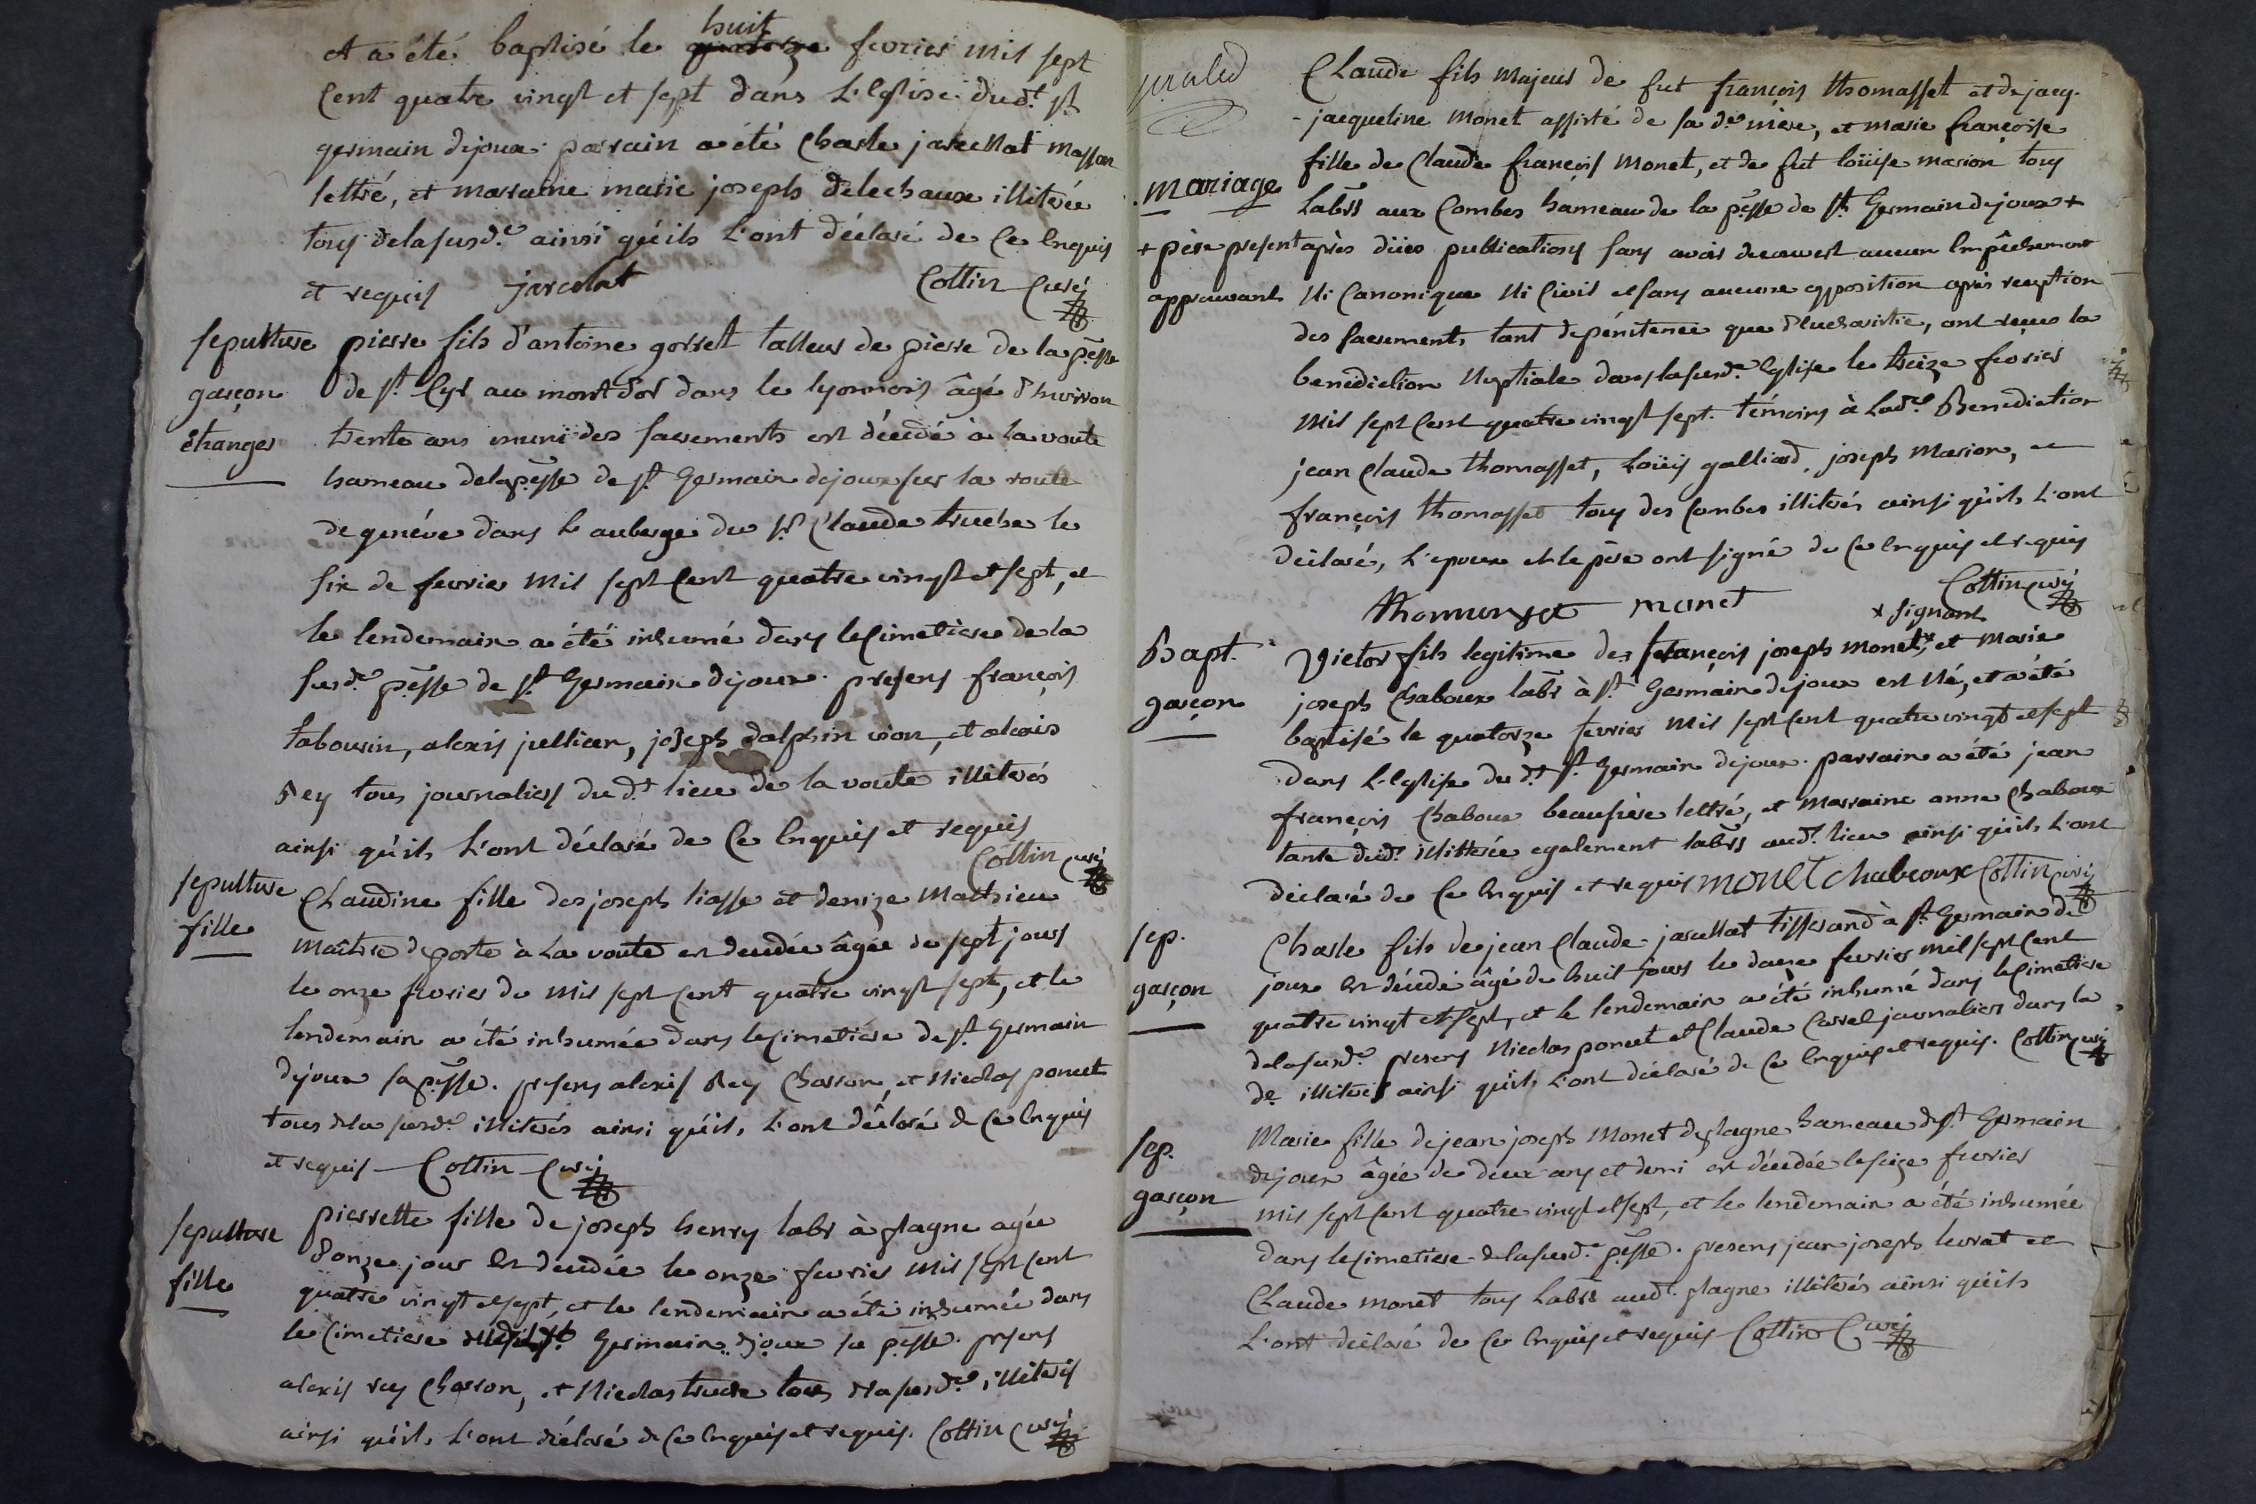 huit
et a été baptisé le quatorze fevrier mil sept
Cent quatre vingt et sept dans L'Eglise dud.t s.t
germain dejoux. parrain a été Charle jarcellat masson
lettré, et marraine marie joseph delechaux illiterée
tous delasusd.e ainsi qu'ils L'ont déclaré de Ce Enquis
et requis jarcelat Collin Curé
sepulture pierre fils d'antoine gorret talleur de pierre de la p.esse
garçon de s.t Cyr au mont d'or dans le lyonnois âgé d'huiron
étranger trente ans muni des sacrements est décédé à la voute
hameau delap.esse de s.t Germain dejoux sur la route
de genéve dans L'auberge du s.r Claude truche le
six de fevrier mil sept Cent quatre vingt et sept, et
le lendemain a été inhumé dans lecimetiere de la
susd.e p.esse de s.t Germain dejoux. presens françois
tabourin, alexis jullien, joseph dalphin ion, et alexis
Rey tous journaliers du d.t lieu de la voute illiterés
ainsi qu'ils L'ont déclaré de Ce Enquis et requis
Collin Curé
sepulture Claudine fille des joseph liasse et denize Mathieu
fille maîtres de poste à La voute est decedée âgée de sept jours
le onze fevrier de mil sept Cent quatre vingt sept, et le
lendemain a été inhumée dans lecimetiere de s.t Germain
dejoux sa p.esse. presens alexis Rey Charron, et Nicolas poncet
tous dela susd.e illiterés ainsi qu'ils L'ont déclaré de Ce Enquis
et requis Collin Curé
sepulture pierrette fille de joseph henry labr à plagne agée
fille d'onze jour Est decedée le onze fevrier mil sept Cent
quatre vingt et sept, et le lendemain a été inhumée dans
le Cimetiere s.t Germain dejoux sa p.esse. presens
alexis rey Charron, et Nicolas truche tous delasusd.e illiterés
ainsi qu'ils L'ont déclaré de Ce Enquis et requis. Collin Curé
Claude fils majeur de fut françois thomasset et de jacq.
-jacqueline monet assisté de sa d.e mère, et marie françoise
fille de Claude françois monet, et de fut loüise marion tous
mariage Labrs aux Combes hameau de la p.esse de s.t Germain dejoux +
+ père present après düës publications sans avoir decouvert aucun Empêchement
approuvant Ni Canonique Ni Civil et sans aucune opposition après reception
des sacrements tant depénitence que d'Eucharistie, ont reçus la
benediction Nuptiale dans lasusd.e Eglise le treize fevrier
mil sept Cent quatre vingt sept. témoins à Lad.e Benediction
jean Claude thomasset, Loüis galliard, joseph Marion, et
françois thomasset tous des Combes illiterés ainsi qu'ils L'ont
déclaré, L'epoux et le père ont signé de Ce Enquis et requis
Collin Curé
thomasset monet
x signant
Bapt. Victor fils legitime des françois joseph monet,x et marie
garçon joseph Chaboux labrs à s.t Germain dejoux est Né, et a été
baptisé le quatorze fevrier mil sept Cent quatre vingt et sept
dans L'Eglise du d.t s.t Germain dejoux. parrain a été jean
françois Chaboux beaufrère lettré, et marraine anne Chaboux
tante dud.t illitterée egalement labrs aud.t lieu ainsi qu'ils L'ont
déclaré de Ce Enquis et requis monet chabeoux Collin Curé
sep. Charle fils de jean Claude jarcellat tisserand à s.t Germain de
garçon joux est décédé âgé de huit jours le douze fevrier mil sept Cent
quatre vingt et sept, et le lendemain a été inhumé dans lecimetiere
delasusd.e presens Nicolas poncet et Claude Carrel journaliers dans la
d.e illiterés ainsi qu'ils L'ont déclaré de Ce Enquis et requis. Collin Curé
sep. Marie fille de jean joseph Monet de plagne hameau de s.t Germain
garçon dejoux âgée de deux ans et demi est décédée leseize fevrier
mil sept Cent quatre vingt et sept, et le lendemain a été inhumée
dans lecimetiere de lasusd.e p.esse. presens jean joseph levrat et
Claude monet tous labrs aud.t plagne illiterés ainsi qu'ils
L'ont déclaré de Ce Enquis et requis Collin Curé